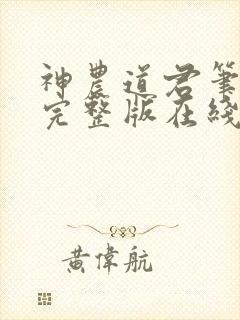 神農道君筆
完整版在綫
黃偉航